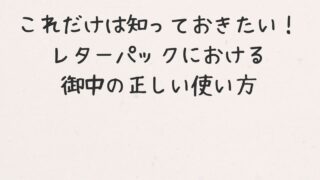 これだけは知っておきたい！
レターパックにおける
御中の正しい使い方